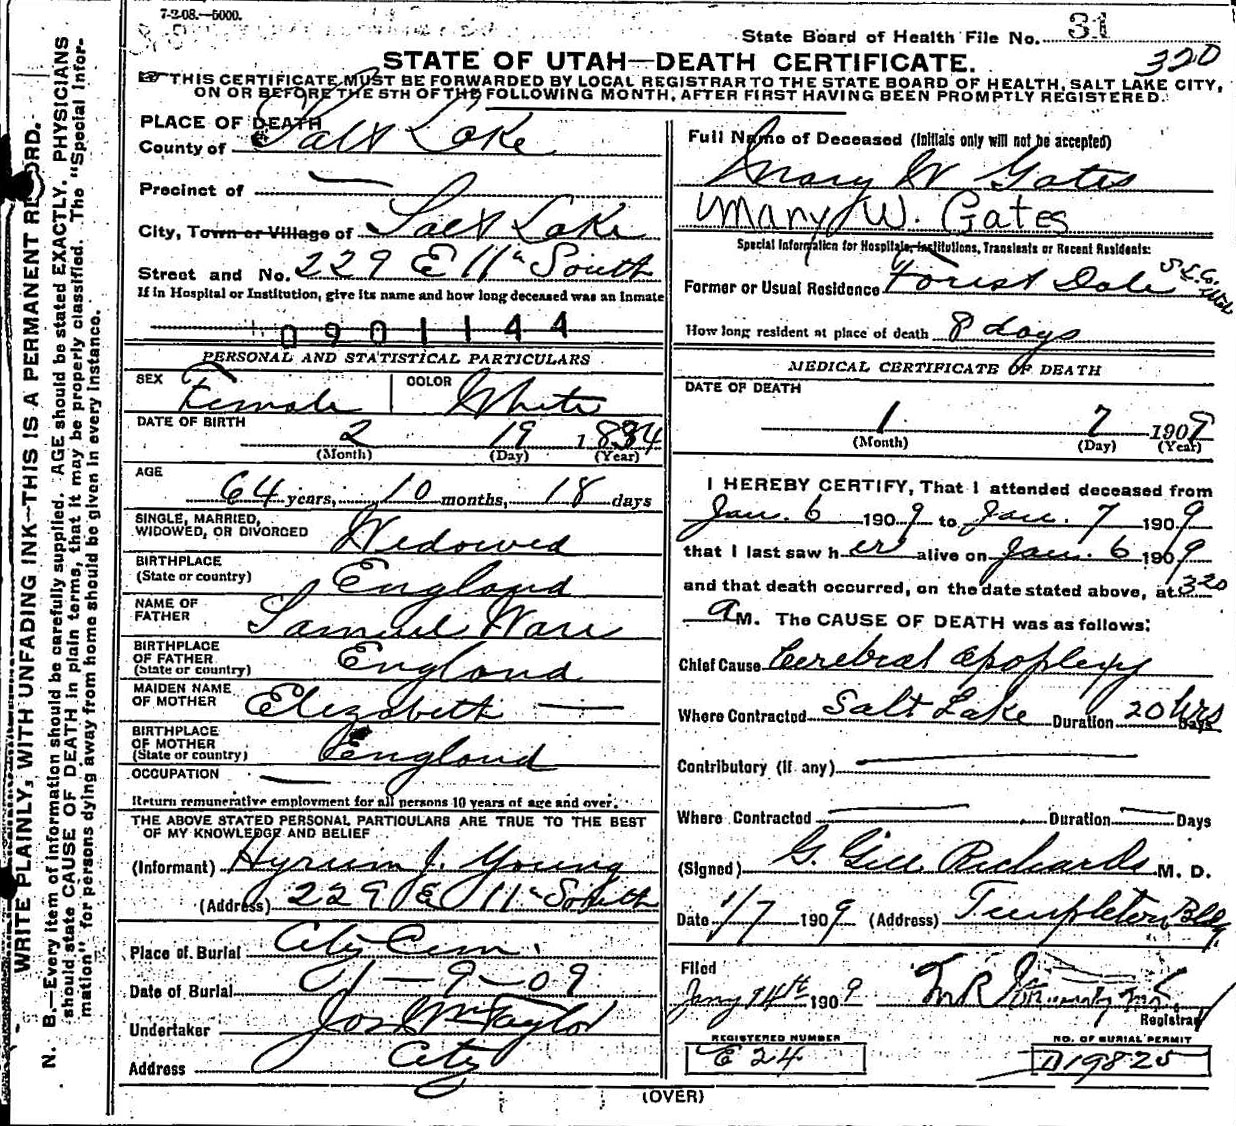 7-2-08.—5000.
State Board of Health File No. 31
320
STATE OF UTAH—DEATH CERTIFICATE.
THIS CERTIFICATE MUST BE FORWARDED BY LOCAL REGISTRAR TO THE STATE BOARD OF HEALTH, SALT LAKE CITY,
ON OR BEFORE THE 5TH OF THE FOLLOWING MONTH, AFTER FIRST HAVING BEEN PROMPTLY REGISTERED.
WRITE PLAINLY, WITH UNFADING INK—THIS IS A PERMANENT RECORD.
N. B.—Every item of information should be carefully supplied. AGE should be stated EXACTLY. PHYSICIANS
should state CAUSE OF DEATH in plain terms, that it may be properly classified. The "Special Infor-
mation" for persons dying away from home should be given in every instance.
PLACE OF DEATH
County of Salt Lake
Precinct of —
City, Town or Village of Salt Lake
Street and No. 229 E 11th South
If in Hospital or Institution, give its name and how long deceased was an inmate
0901144
PERSONAL AND STATISTICAL PARTICULARS
SEX Female COLOR White
DATE OF BIRTH 2 19 1834
(Month) (Day) (Year)
AGE 64 years, 10 months, 18 days
SINGLE, MARRIED,
WIDOWED, OR DIVORCED Widowed
BIRTHPLACE
(State or country) England
NAME OF
FATHER Samuel Ware
BIRTHPLACE
OF FATHER
(State or country) England
MAIDEN NAME
OF MOTHER Elizabeth —
BIRTHPLACE
OF MOTHER
(State or country) England
OCCUPATION —
Return remunerative employment for all persons 10 years of age and over.
THE ABOVE STATED PERSONAL PARTICULARS ARE TRUE TO THE BEST
OF MY KNOWLEDGE AND BELIEF
(Informant) Hyrum J. Young
(Address) 229 E 11th South
Place of Burial City Cem.
Date of Burial 1—9—09
Undertaker Jos Wm Taylor
Address City
Full Name of Deceased (Initials only will not be accepted)
Mary W Gates
Mary W. Gates
Special Information for Hospitals, Institutions, Transients or Recent Residents:
Former or Usual Residence Forest Dale S.L.C. Utah
How long resident at place of death 8 days
MEDICAL CERTIFICATE OF DEATH
DATE OF DEATH
1 7 1909
(Month) (Day) (Year)
I HEREBY CERTIFY, That I attended deceased from
Jan. 6 1909 to Jan. 7 1909
that I last saw her alive on Jan. 6 1909
and that death occurred, on the date stated above, at 3 20
a M. The CAUSE OF DEATH was as follows:
Chief Cause Cerebral apoplexy
Where Contracted Salt Lake Duration 20 hrs Days
Contributory (if any) —
Where Contracted — Duration — Days
(Signed) G. Gill Richards M. D.
Date 1/7 1909 (Address) Templeton Bldg.
Filed
Jany 14th 1909
Registrar
REGISTERED NUMBER
E 24
NO. OF BURIAL PERMIT
D19825
(OVER)